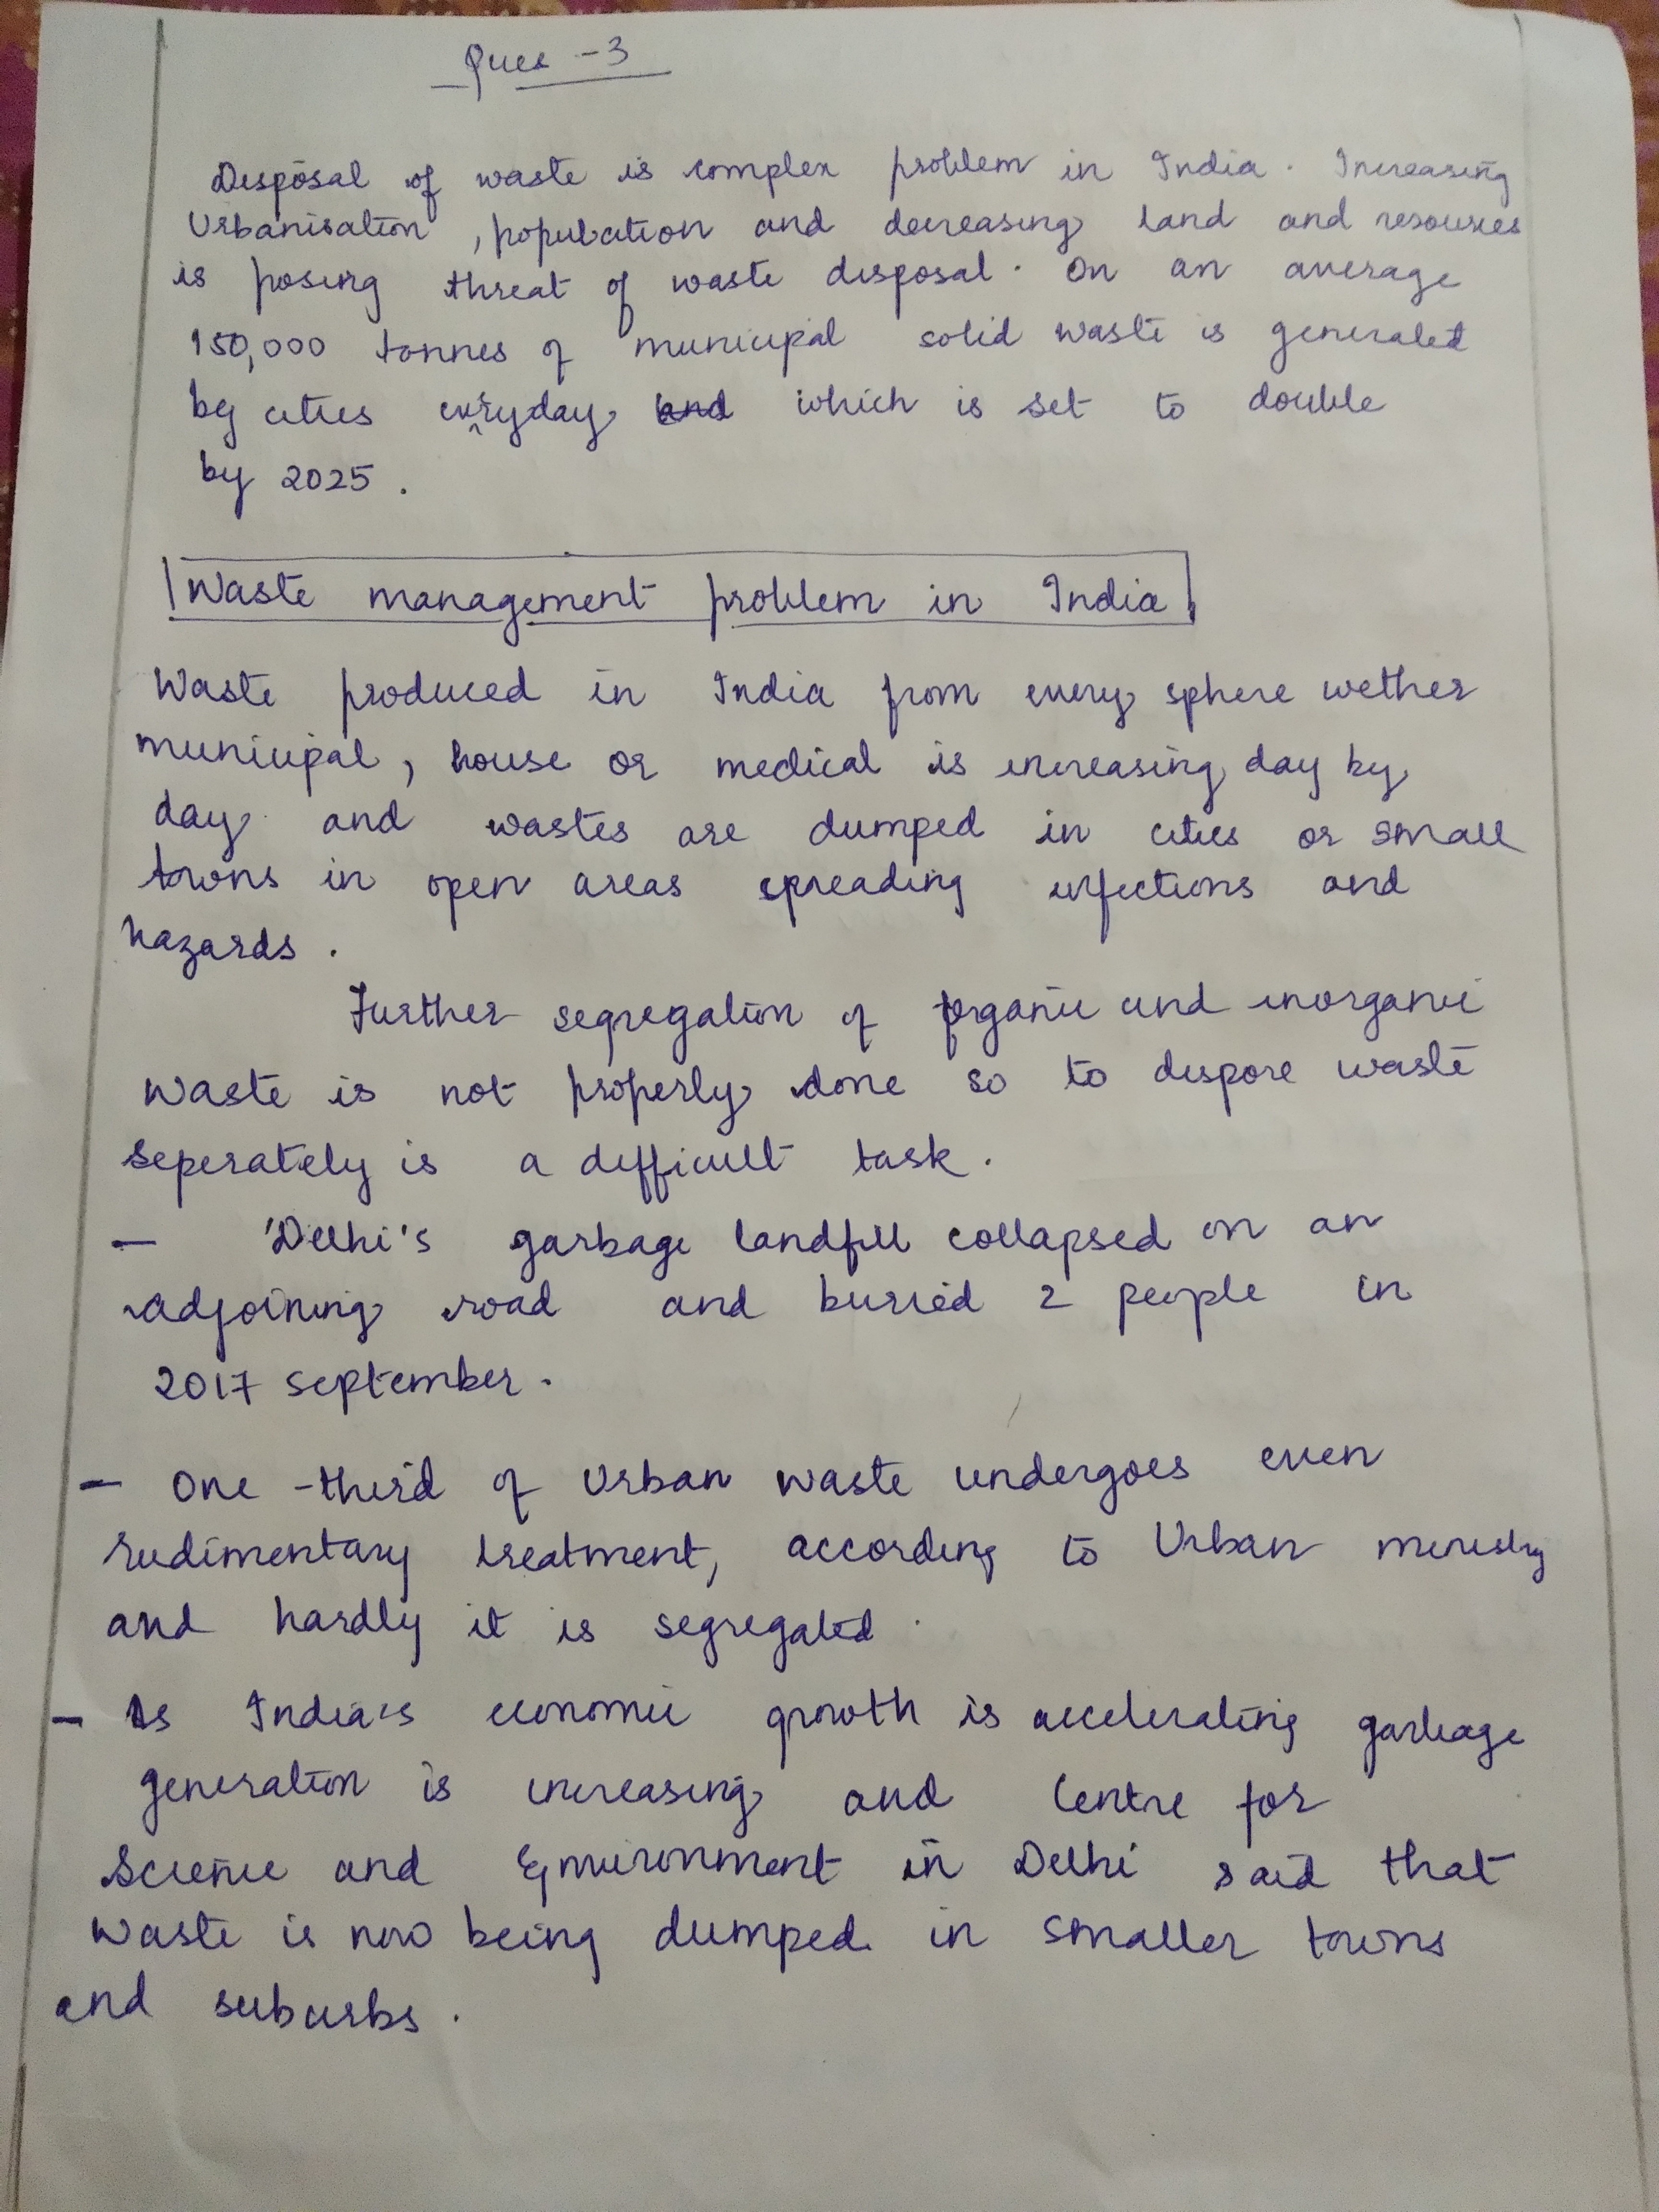 Ques - 3
Disposal of waste is complex problem in India. Increasing
Urbanisation, population and decreasing land and resources
is posing threat of waste disposal. On an average
150,000 tonnes of municipal solid waste is generated
by cities everyday and which is set to double
by 2025.
Waste management problem in India
Waste produced in India from every sphere wether
municipal, house or medical is increasing day by
day and wastes are dumped in cities or small
towns in open areas spreading infections and
hazards.
Further segregation of organic and inorganic
waste is not properly done so to dispose waste
seperately is a difficult task.
- 'Delhi's garbage landfill collapsed on an
adjoining road and buried 2 people in
2017 september.
- One-third of Urban waste undergoes even
rudimentary treatment, according to Urban ministry
and hardly it is segregated.
- As India's economic growth is accelerating garbage
generation is increasing and Centre for
Science and Environment in Delhi said that
waste is now being dumped in smaller towns
and suburbs.